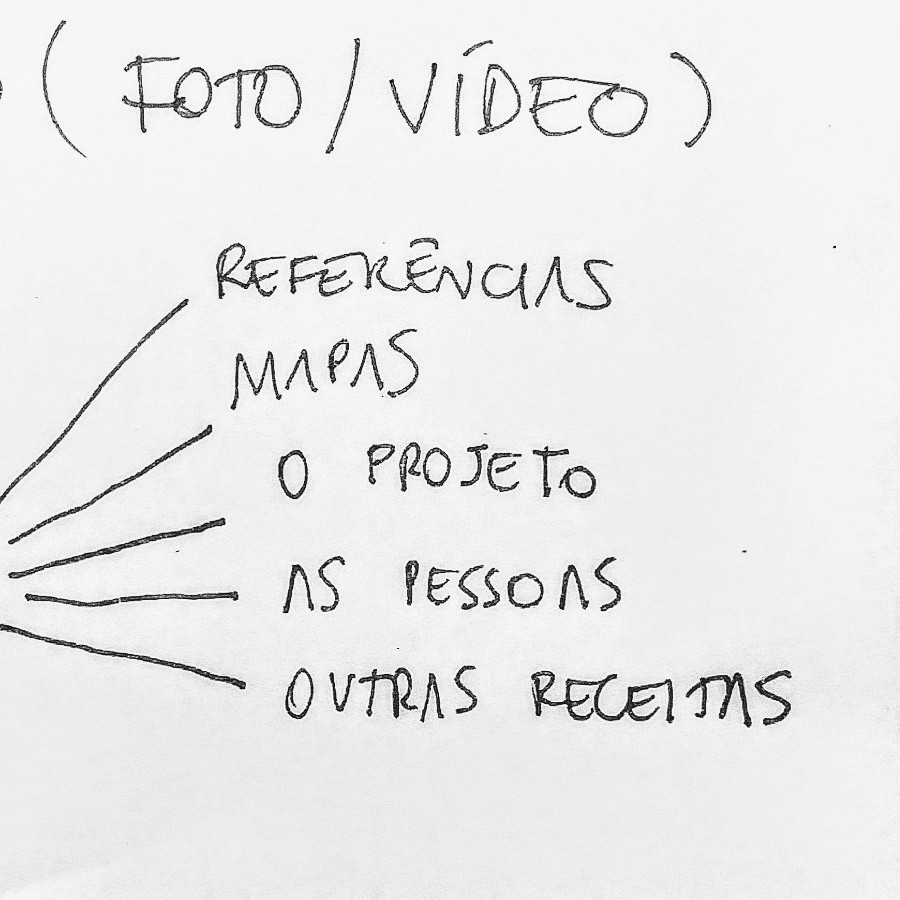 ( FOTO / VÍDEO )
REFERÊNCIAS
MAPAS
O PROJETO
AS PESSOAS
OUTRAS RECEITAS